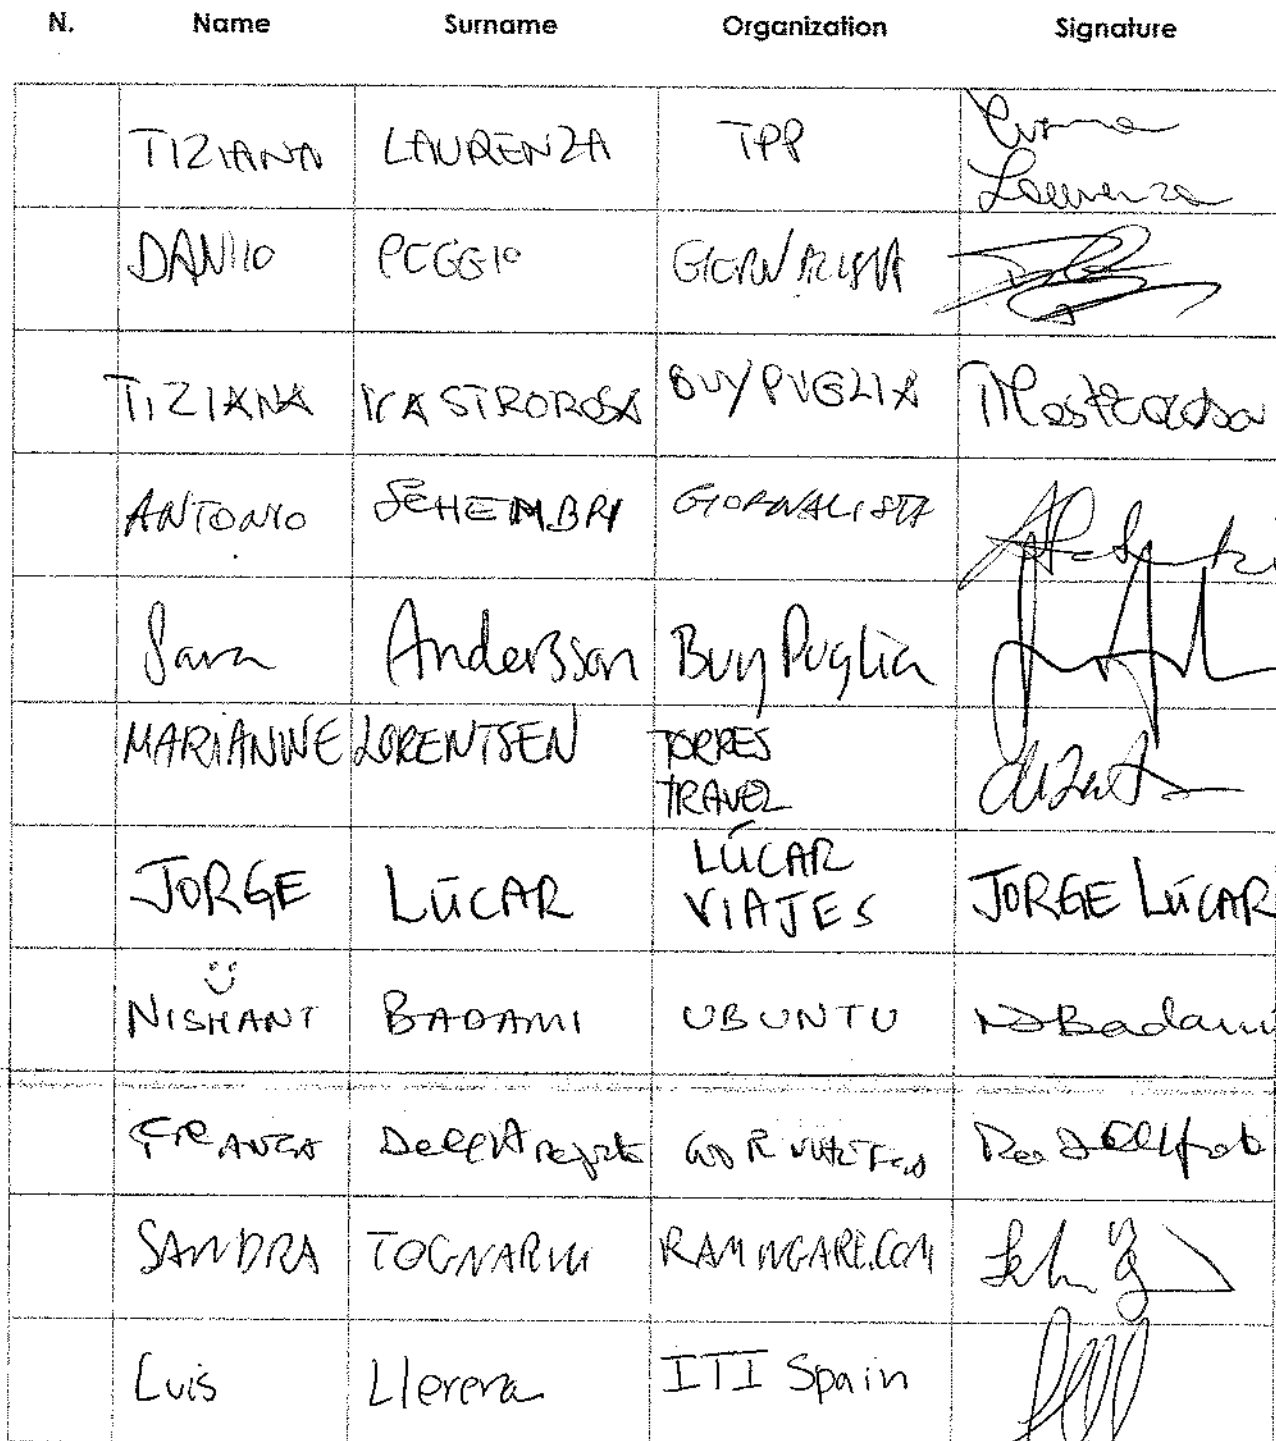 N. Name Surname Organization Signature
TIZIANA LAURENZA TPP Tiziana
Laurenza
DANILO POGGIO GIORNALISTA
TIZIANA MASTROROSA BUY PUGLIA TMastrorosa
ANTONIO SCHEMBRI GIORNALISTA
Sara Andersson Buy Puglia
MARIANNE LORENTSEN TORRES
TRAVEL
JORGE LÚCAR LÚCAR
VIAJES JORGE LÚCAR
NISHANT BADAMI UBUNTU NBadami
FRANCA
SANDRA TOGNARINI RAMINGARE.COM
Luis Llerena ITI Spain